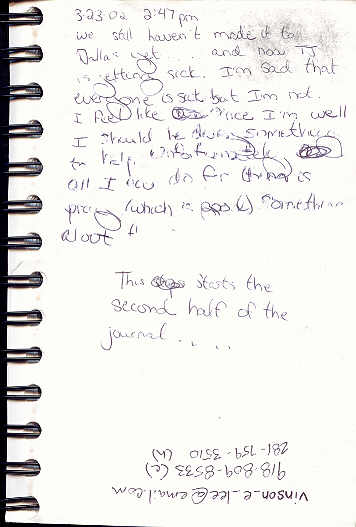 3.23.02 2:47pm
we still haven't made it to
Dallas yet.... and now TJ
is getting sick. I'm sad that
everyone is sick but I'm not.
I feel like since I'm well
I should be doing something
to help. Unfortunately
all I can do for them is
pray (which is good) something
about
This starts the
second half of the
journal.....
vinson_e_lee@email.com
918-809-8533 (c)
281-759-3510 (h)